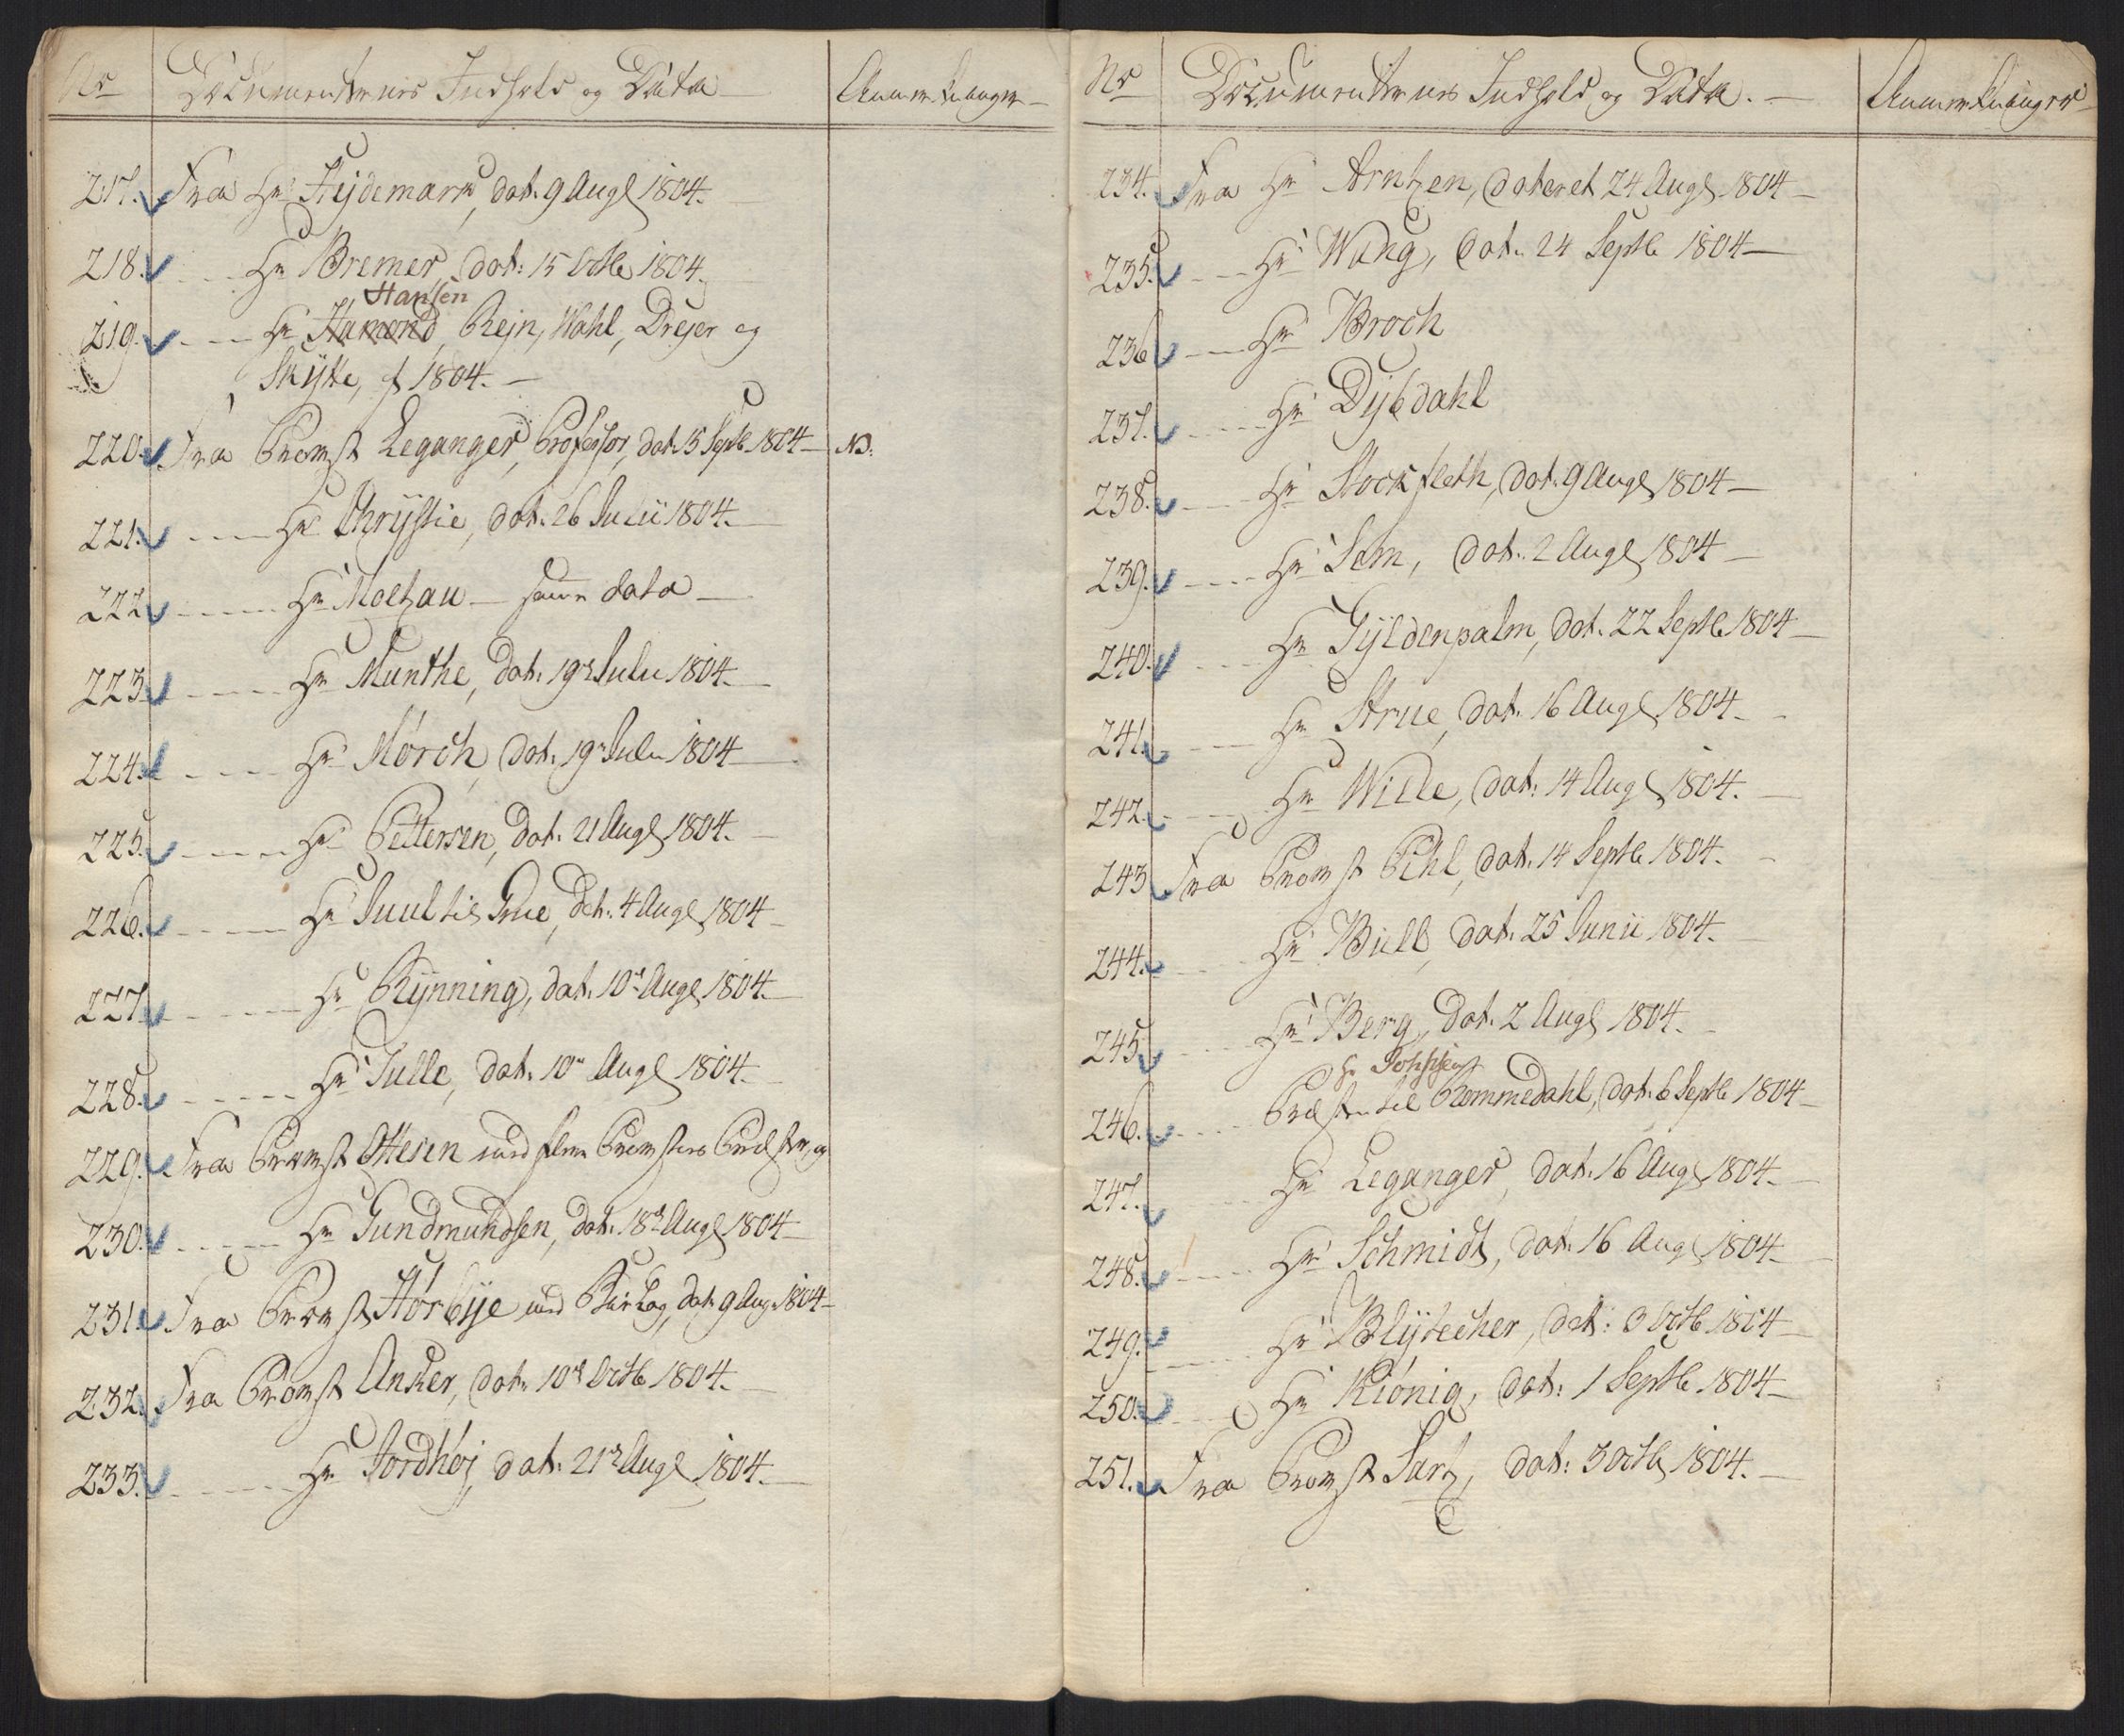 No
Documenternes Indhold og Data
Anmerkninger
217. Fra Hr Hejdemark, dat. 9 Augs 1804.
218. Hr Bremer, dat: 15 Octb 1804.
Hansen
219. Hr Hamond, Rejn, Wahl, Drejer og
Skytte, 1804.
220. Fra Provst Leganger, Professor, dat. 15 Septb 1804 NB.
221. Hr Chrystie, dat. 26 Julii 1804.
222. Hr Moltzau - samme data
223. Hr Munthe, dat. 19de Julii 1804.
224. Hr Mörch, dat. 19de Julii 1804
225. Hr Pettersen, dat. 21 Augs 1804.
226. Hr Juul til Grue, dat. 4 Augs 1804
227. Hr Rynning, dat. 10de Augs 1804.
228. Hr Tulle, dat. 10de Augs 1804.
229. Fra Provst Ottesen med flere Provstiets Præster, og
230. Hr Gundmundsen, dat. 18de Augs 1804
231. Fra Provst Hörbye med Bilag, dat. 9 Aug. 1804
232. Fra Provst Anker, dat. 10de Octb 1804.
233. Hr Jordhöj, dat. 21de Augs 1804.
No
Documenternes Indhold og Data.
Anmerkninger
234. Fra Hr Arntzen, dateret 24 Augs 1804
235. Hr Wang, dat. 24 Septb 1804
236 Hr Broch
237. Hr Dybdahl
238. Hr Stockfleth, dat. 9 Augs 1804
239. Hr Sem, dat. 2 Augs 1804
240. Hr Gyldenpalm, dat. 22 Septb 1804
241. Hr Strue, dat. 16 Augs 1804.
242. Hr Wille, dat: 14 Augs 1804.
243 Fra Provst Pihl, dat. 14 Septb 1804.
244. Hr Bull, dat. 25 Junii 1804.
245. Hr Berg, dat. 2 Augs 1804.
Hr
246. Præsten til Rommedahl, dat. 6 Septb 1804
247. Hr Leganger, dat. 16 Augs 1804.
248. Hr Schmidt, dat. 16 Augs 1804.
249. Hr Blytecher, dat: 3 Octb 1804
250. Hr Kiönig, dat: 1 Septb 1804
251. Fra Provst Sartz, dat: 3 Octb 1804.